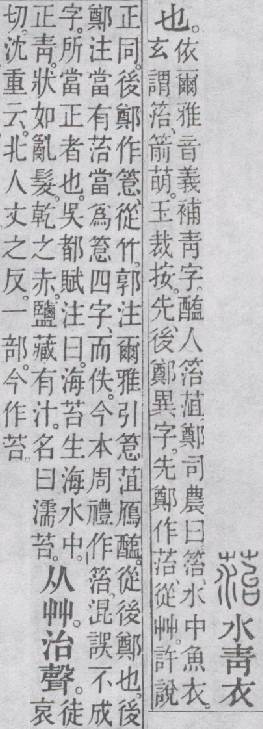 菭水青衣
也。依爾雅音義補青字。醢人箈菹。鄭司農曰。箈、水中魚衣。
玄謂箈、箭萌。玉裁按。先、後鄭異字。先鄭作菭。從艸。許說
正同。後鄭作䈚。從竹。郭注爾雅引䈚菹鴈醢。從後鄭也。後
鄭注當有菭當爲䈚四字。而佚。今本周禮作箈。混誤不成
字。所當正者也。吳都賦注曰。海苔生海水中。
正青。狀如亂髮。乾之赤。鹽藏有汁。名曰濡苔。
从艸。治聲。徒
哀
切。沈重云。北人丈之反。一部。今作苔。